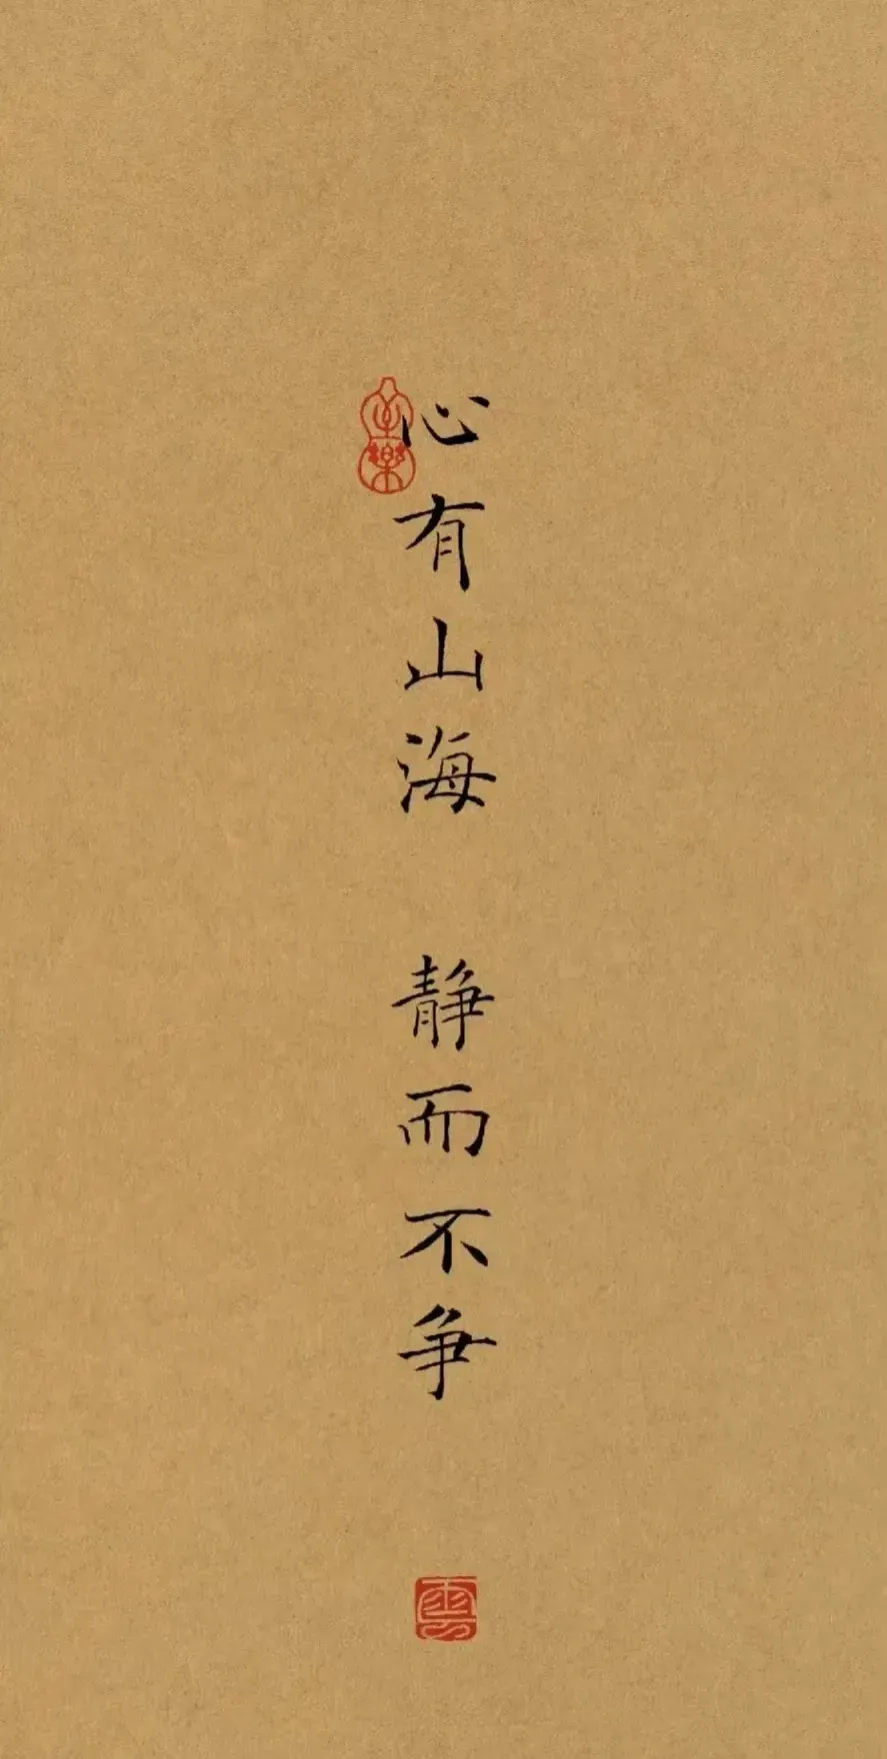 心有山海 静而不争